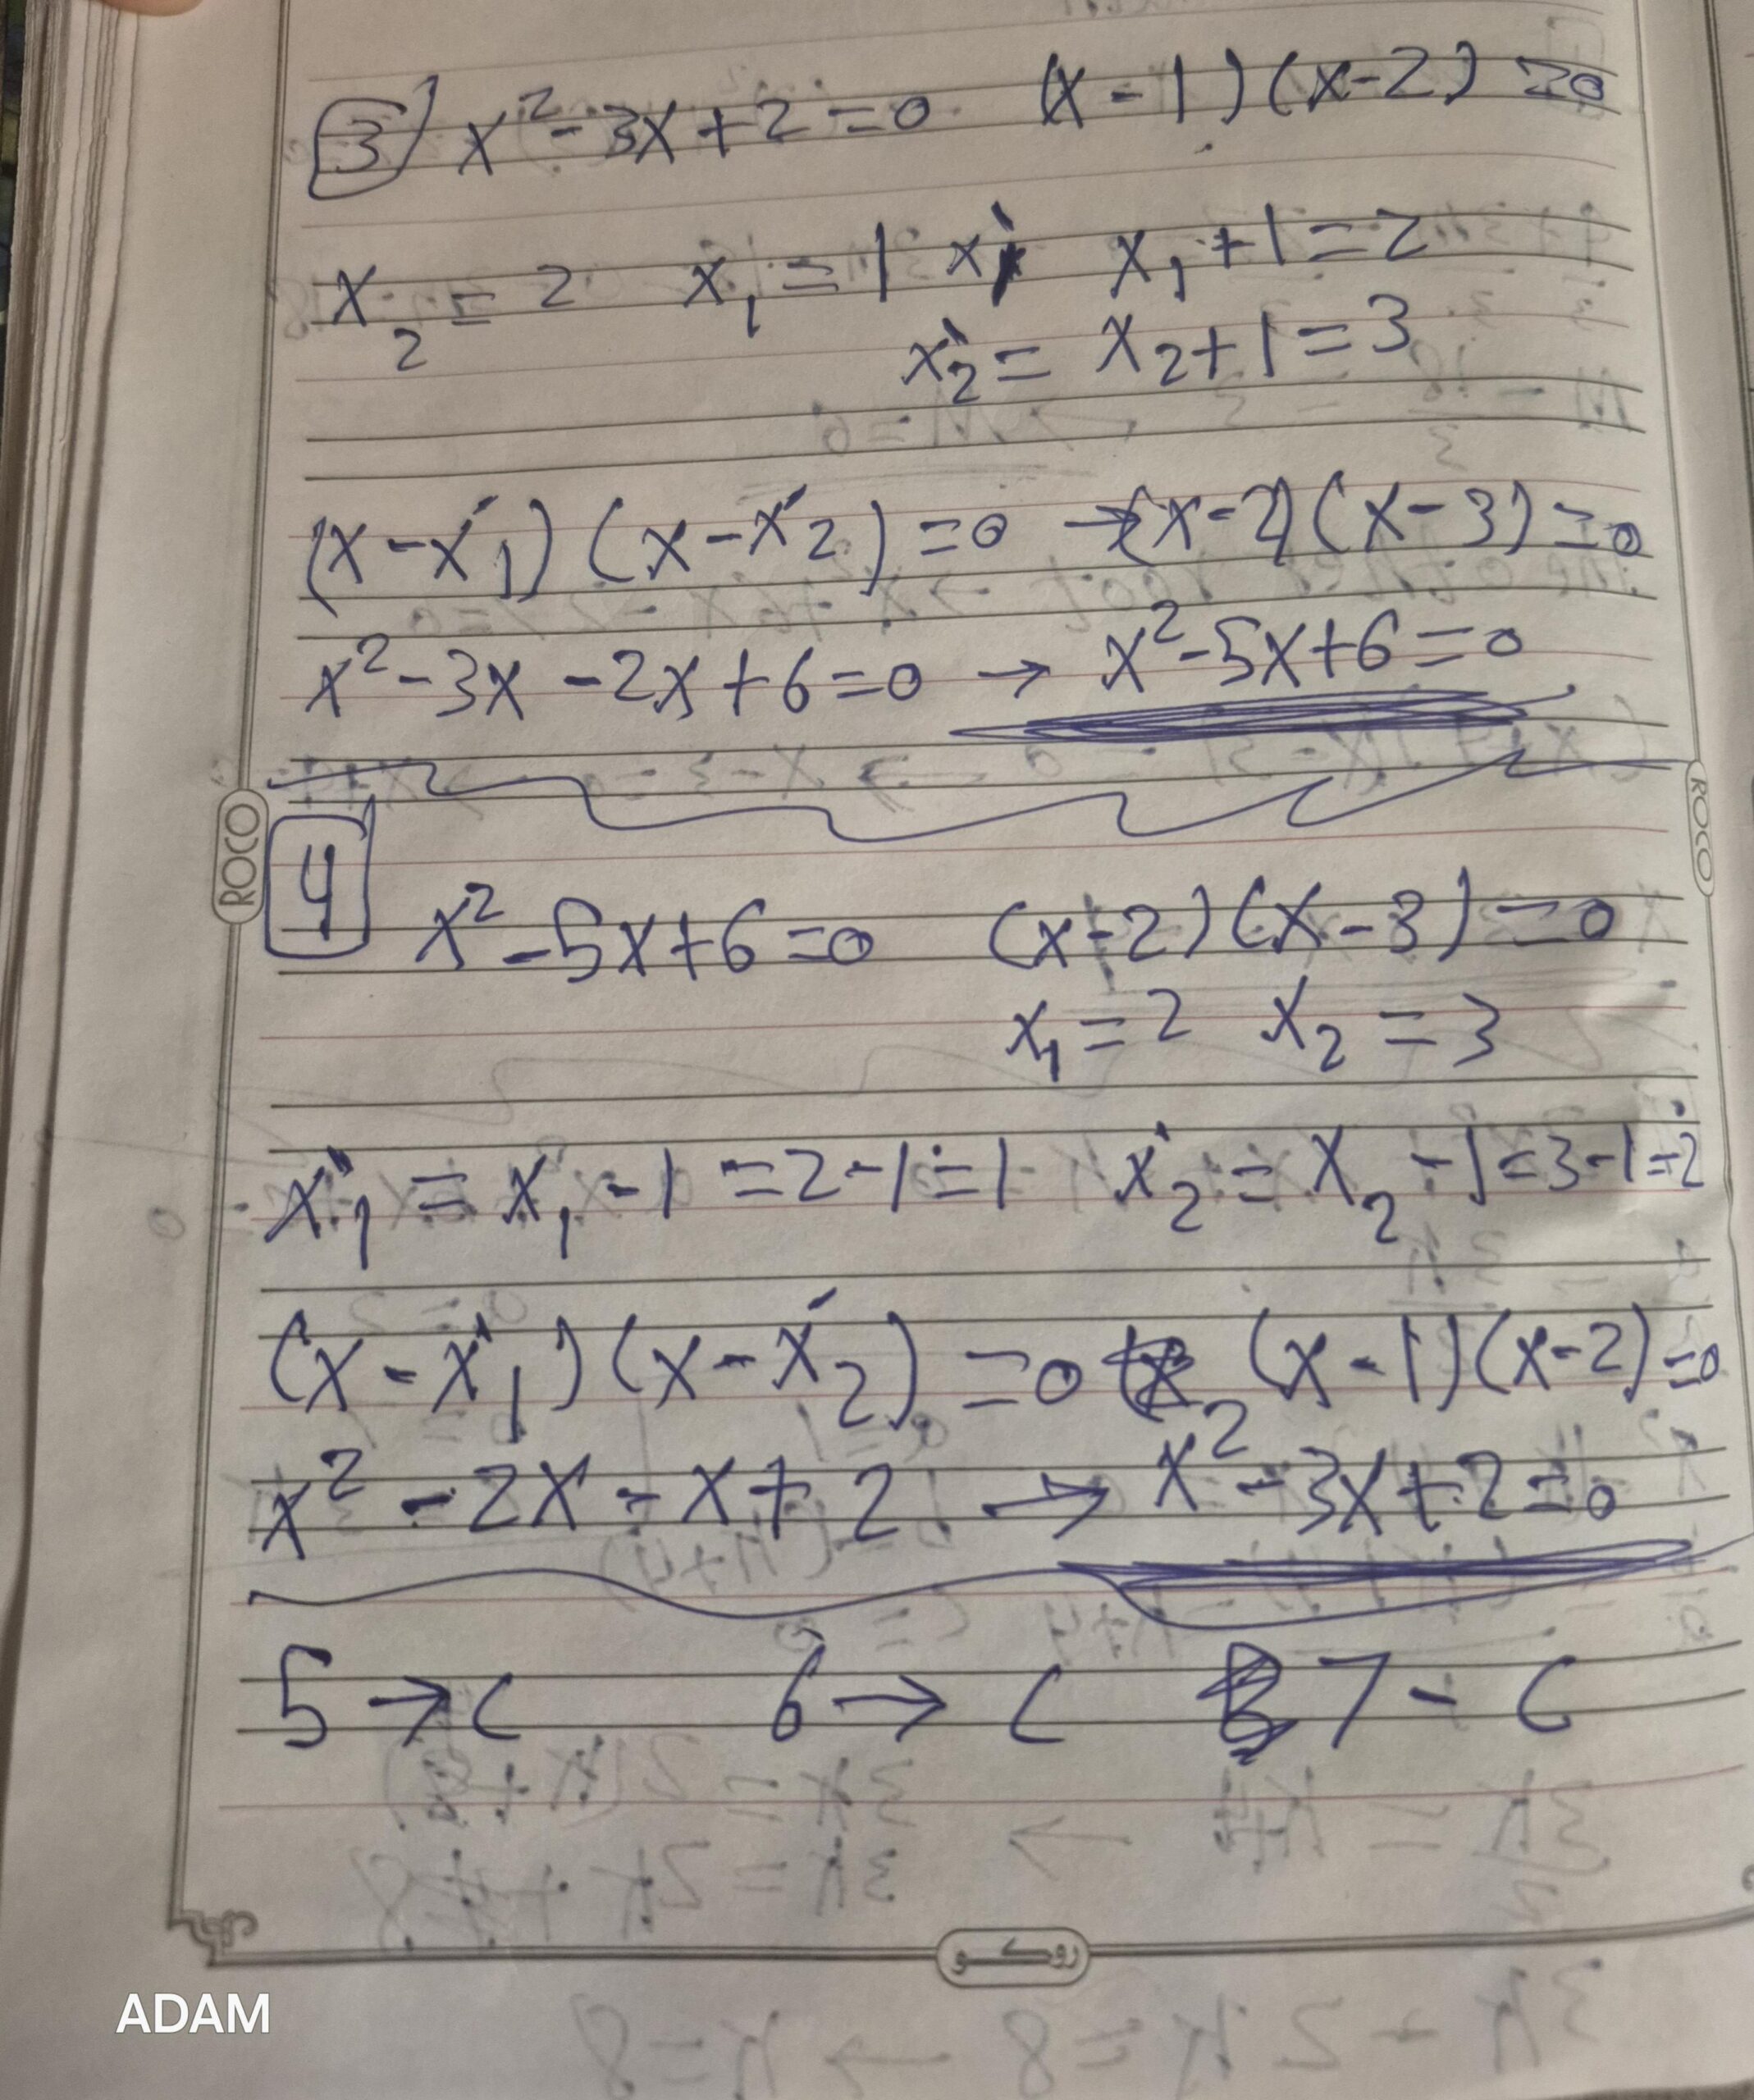 3) x² - 3x + 2 = 0 (x - 1)(x - 2) = 0
x₂ = 2 x₁ = 1 x₁' x₁ + 1 = 2
x₂' = x₂ + 1 = 3
(x - x₁')(x - x₂') = 0 → (x - 2)(x - 3) = 0
x² - 3x - 2x + 6 = 0 → x² - 5x + 6 = 0
ROCO
ROCO
4 x² - 5x + 6 = 0 (x - 2)(x - 3) = 0
x₁ = 2 x₂ = 3
x₁' = x₁ - 1 = 2 - 1 = 1 x₂' = x₂ - 1 = 3 - 1 = 2
(x - x₁')(x - x₂') = 0 (x - 1)(x - 2) = 0
x² - 2x - x + 2 → x² - 3x + 2 = 0
5 → C 6 → C 7 - C
روكو
ADAM